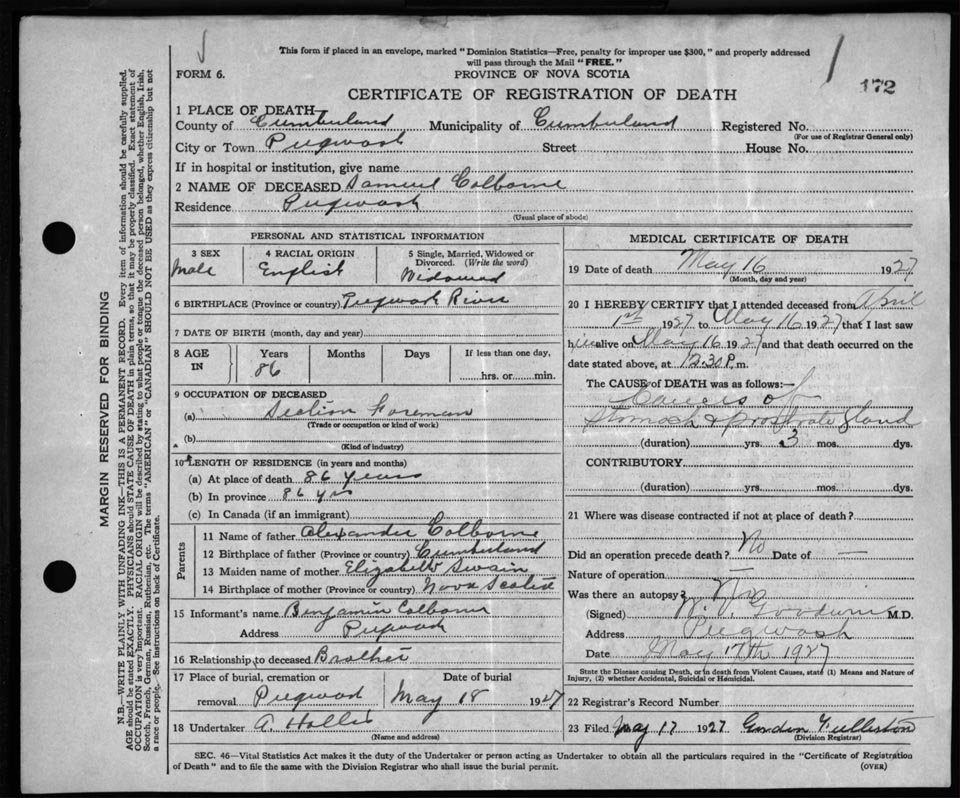 This form if placed in an envelope, marked "Dominion Statistics—Free, penalty for improper use $300," and properly addressed
will pass through the Mail "FREE."
FORM 6.
PROVINCE OF NOVA SCOTIA
172
CERTIFICATE OF REGISTRATION OF DEATH
1 PLACE OF DEATH—
County of Cumberland Municipality of Cumberland Registered No.
(For use of Registrar General only)
City or Town Pugwash Street House No.
If in hospital or institution, give name
2 NAME OF DECEASED Samuel Colborne
Residence Pugwash
(Usual place of abode)
PERSONAL AND STATISTICAL INFORMATION
3 SEX
Male
4 RACIAL ORIGIN
English
5 Single, Married, Widowed or
Divorced. (Write the word)
Widowed
6 BIRTHPLACE (Province or country) Pugwash River
7 DATE OF BIRTH (month, day and year)
8 AGE
IN
Years
86
Months
Days
If less than one day,
hrs. or min.
9 OCCUPATION OF DECEASED
(a) Section Foreman
(Trade or occupation or kind of work)
(b)
(Kind of industry)
10 LENGTH OF RESIDENCE (in years and months)
(a) At place of death 86 years
(b) In province 86 yrs
(c) In Canada (if an immigrant)
Parents
11 Name of father Alexander Colborne
12 Birthplace of father (Province or country) Cumberland
13 Maiden name of mother Elizabeth Swain
14 Birthplace of mother (Province or country) Nova Scotia
15 Informant's name Benjamin Colborne
Address Pugwash
16 Relationship to deceased Brother
17 Place of burial, cremation or
removal Pugwash
Date of burial
May 18 1927
18 Undertaker A. Hollis
(Name and address)
MEDICAL CERTIFICATE OF DEATH
19 Date of death May 16 1927
(Month, day and year)
20 I HEREBY CERTIFY that I attended deceased from April
1st 1927 to May 16 1927 that I last saw
him alive on May 16 1927 and that death occurred on the
date stated above, at 12.30 P. m.
The CAUSE of DEATH was as follows:—
Cancers of
Stomach & prostrate gland
(duration) yrs. 3 mos. dys.
CONTRIBUTORY
(duration) yrs. mos. dys.
21 Where was disease contracted if not at place of death?
Did an operation precede death? No Date of —
Nature of operation —
Was there an autopsy? No
(Signed) Goodwin M.D.
Address Pugwash
Date May 17th 1927
State the Disease causing Death, or in death from Violent Causes, state (1) Means and Nature of
Injury, (2) whether Accidental, Suicidal or Homicidal.
22 Registrar's Record Number
23 Filed May 17 1927 Gordon Fullerton
(Division Registrar)
SEC. 46—Vital Statistics Act makes it the duty of the Undertaker or person acting as Undertaker to obtain all the particulars required in the "Certificate of Registration
of Death" and to file the same with the Division Registrar who shall issue the burial permit.
(OVER)
MARGIN RESERVED FOR BINDING
N.B.—WRITE PLAINLY WITH UNFADING INK—THIS IS A PERMANENT RECORD. Every item of information should be carefully supplied.
AGE should be stated EXACTLY. PHYSICIANS should STATE CAUSE OF DEATH in plain terms, so that it may be properly classified. Exact statement of
OCCUPATION is very important. RACIAL ORIGIN will be described by stating to what people or tongue the deceased person belonged, whether English, Irish,
Scotch, French, German, Russian, Ruthenian, etc. The terms "AMERICAN" or "CANADIAN" SHOULD NOT BE USED as they express citizenship but not
a race or people. See instructions on back of Certificate.